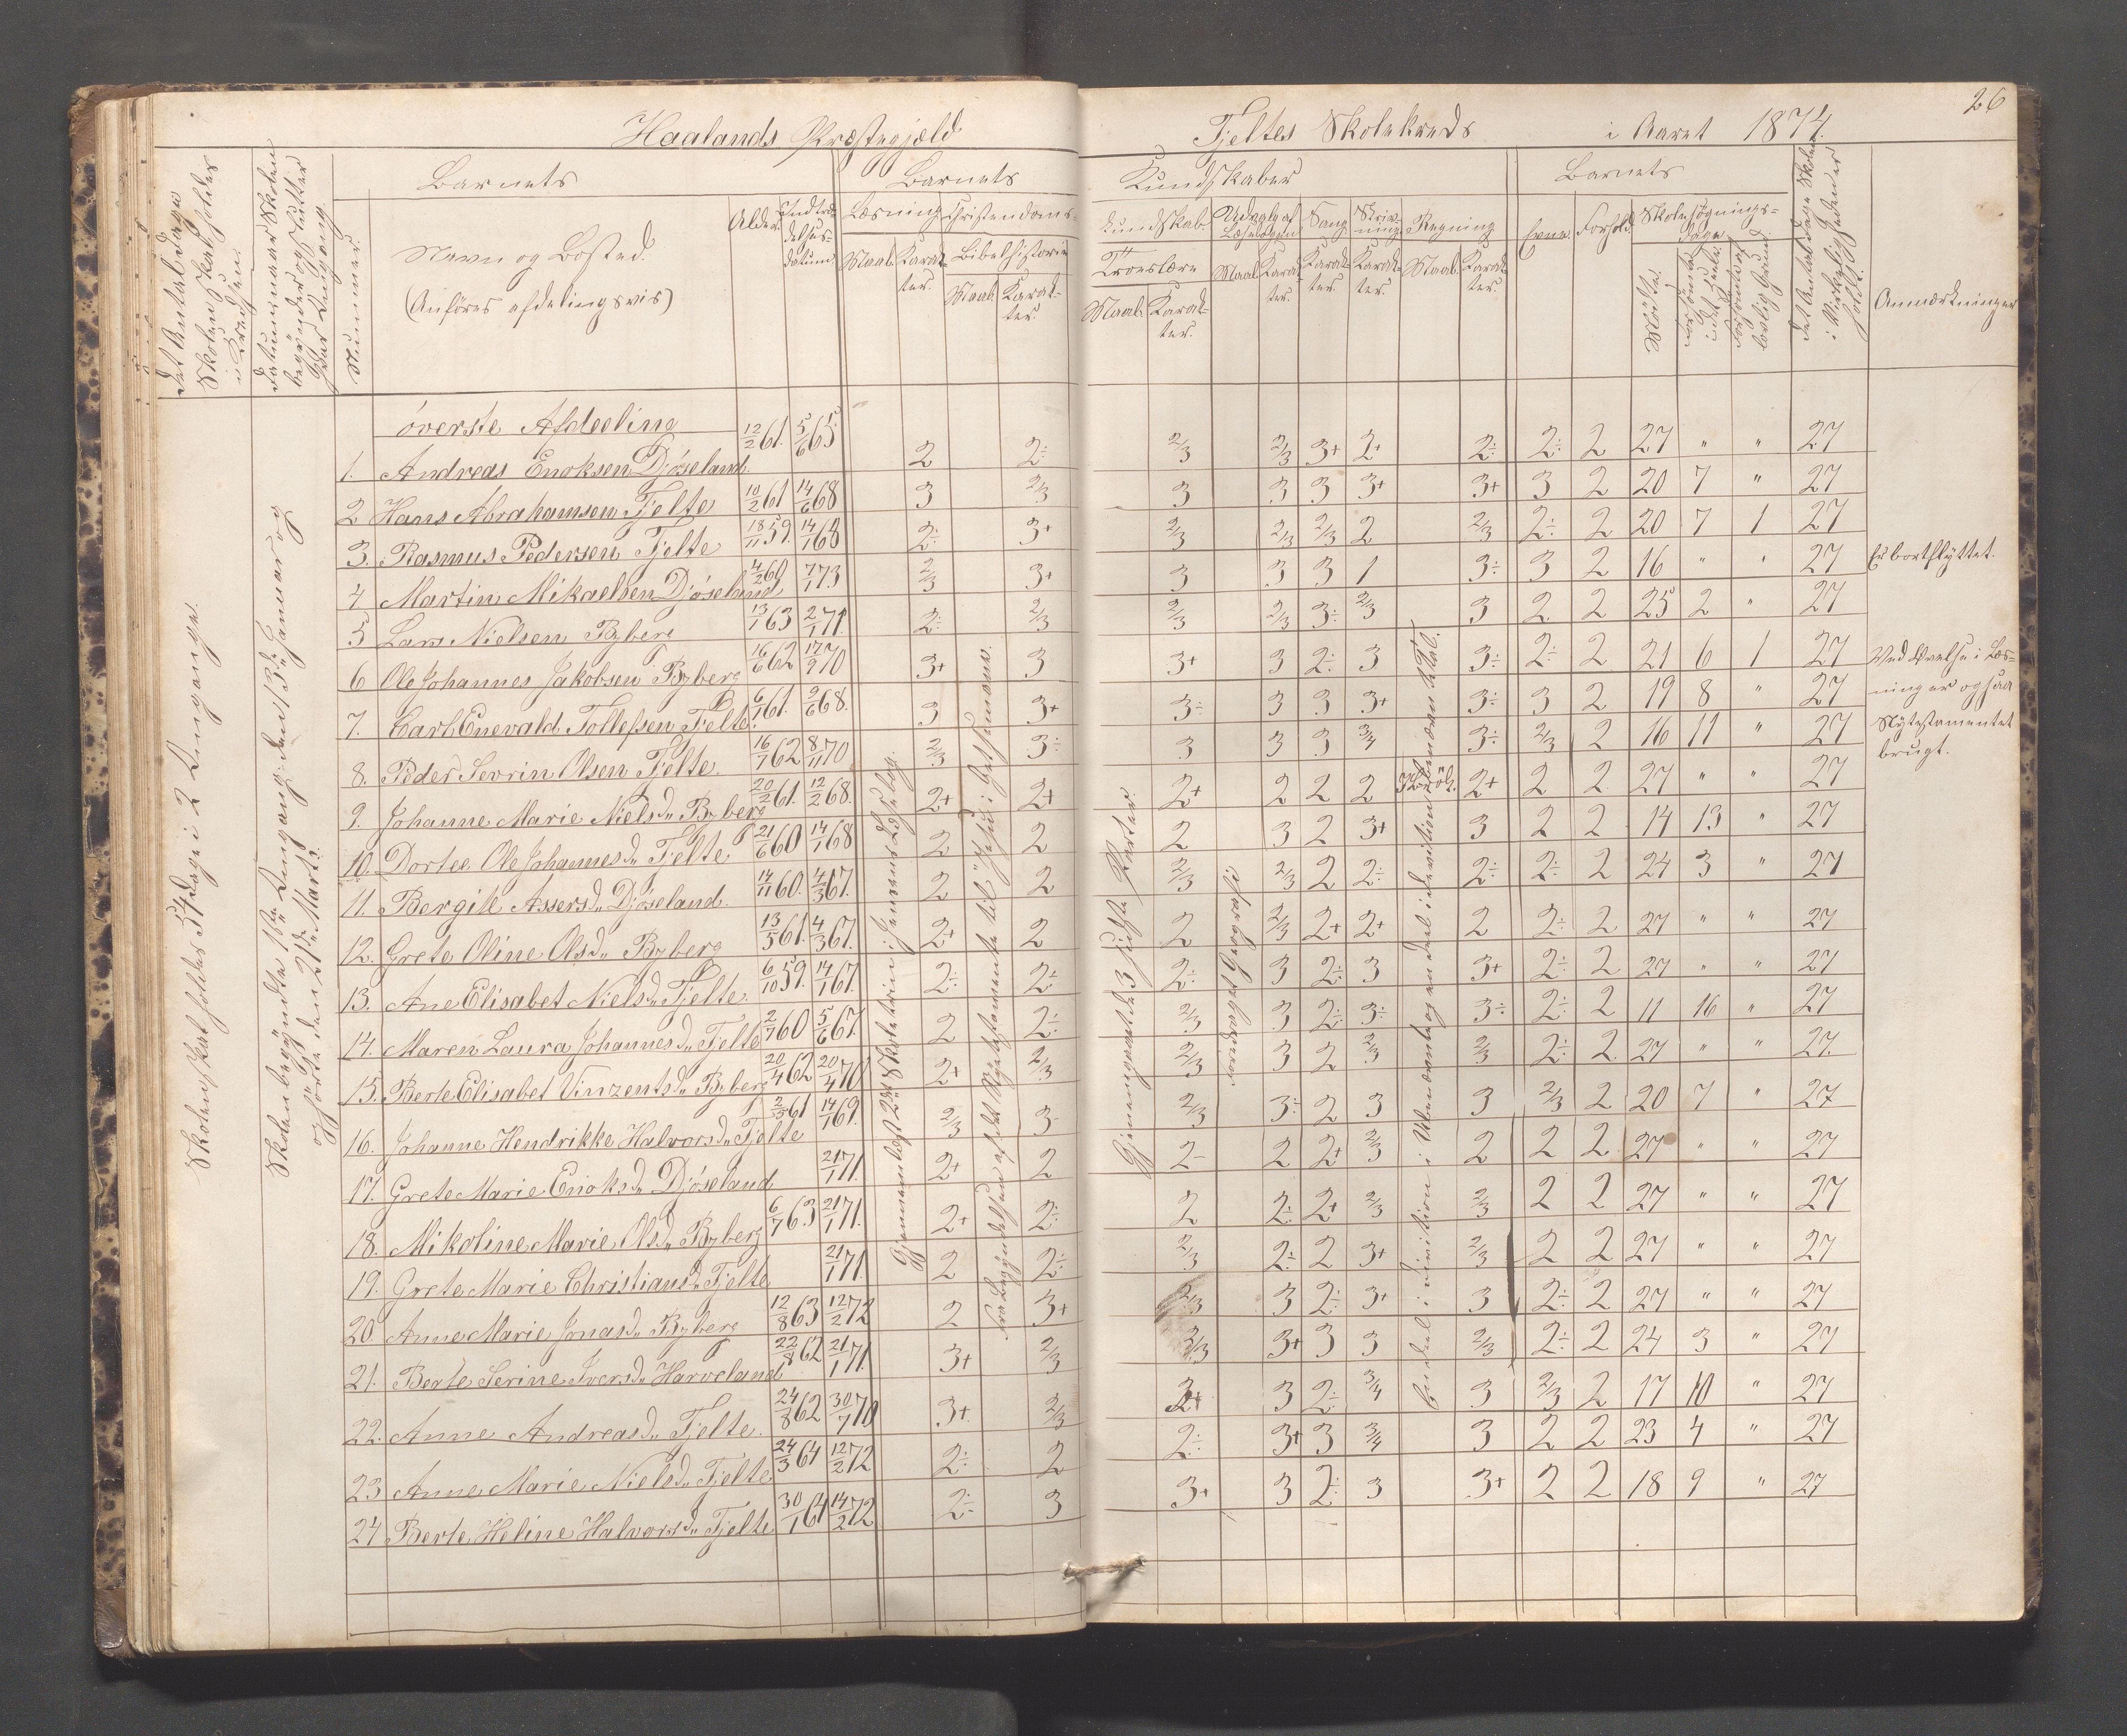 26
Haalands Præstegjæld Tjeltes Skolekreds i Aaret 1874.
Det Antal Dage Skolen skal holdes i Kredsen.
Datum, naar Skolen begynder og slutter hver Omgang.
Nummer.
Barnets
Navn og Bosted.
(Anføres afdelingsvis)
Alder.
Indtrædelsesdatum.
Barnets Kundskaber
Læsning
Maal. Karakter.
Christendoms- Kundskab
Bibelhistorie
Maal. Karakter.
Troeslære
Maal. Karakter.
Udvalg af Læsebogen
Maal. Karakter.
Sang
Karakter
Skrivning
Karakter.
Regning
Maal. Karakter.
Barnets
Evne. Forhold.
Skolesøgnings-Dage
Mødte.
forsømte i det Hele.
forsømte af lovlig Grund.
Det Antal Dage Skolen i Virkelighed er holdt.
Anmærkninger
Skolen skal holdes 54 Dage i 2 Omgange.
Skolen begyndte 1ste Omgang den 13de Januar og
ophørte den 21de Marts.
øverste Afdeeling
1. Andreas Enoksen Djøseland. 12/2 61. 5/6 65 2 2÷ 2/3 2/3 3+ 2+ 2÷ 2÷ 2 27 " " 27
2 Hans Abrahamsen Tjelte 10/2 61 14/6 68 3 2/3 3 3 3 3+ 3+ 3 2 20 7 " 27
3. Rasmus Pedersen Tjelte 18/11 59. 14/1 68 2÷ 3+ 2/3 2/3 2/3 2 2/3 2÷ 2 20 7 1 27
4 Martin Mikaelsen Djøseland 4/2 60 7/1 73 2/3 3+ 3 3 3 1 3÷ 3 2 16 " " 27 Er bortflyttet.
5 Lars Nielsen Byberg 13/1 63 2/1 71. 2÷ 2/3 2/3 2/3 3÷ 2/3 3 2 2 25 2 " 27
6 Ole Johannes Jakobsen Byberg 16/6 62 17/9 70 3+ 3 3+ 3 2÷ 3 3÷ 2÷ 2 21 6 1 27 Ved Øvelse i Læs-
7. Carl Enevald Tollefsen Tjelte. 6/1 61. 2/6 68. 3 3+ 3÷ 3 3 3+ 3÷ 3 2 19 8 " 27 ning er ogsaa
8. Peder Sevrin Olsen Tjelte. 16/7 62 8/11 70 2/3 3÷ 3 3 3 3/4 3÷ 2/3 2 16 11 " 27 Nytestamentet
brugt.
9. Johanne Marie Nielsd. Byberg 20/2 61. 12/2 68. 2+ 2+ 2+ 2 2 2 2+ 2 2 27 " " 27
10. Dortee Ole Johannesd. Tjelte 21/6 60 14/1 68 2 2 2 3 2 3+ 3 2 2 14 13 " 27
11. Bergite Assersd. Djøseland. 14/11 60. 4/3 67. 2 2 2/3 2/3 2 2÷ 2÷ 2÷ 2 24 3 " 27
12. Grete Oline Olsd. Byberg 13/5 61. 4/3 67. 2+ 2 2 2/3 2+ 2+ 2 2÷ 2 27 " " 27
13. Ane Elisabet Nielsd. Tjelte. 6/10 59. 14/1 67. 2÷ 2÷ 2÷ 3 2÷ 3 3+ 2÷ 2 27 " " 27
14. Maren Laura Johannesd. Tjelte 2/7 60 5/6 67. 2 2÷ 2/3 3 2÷ 3÷ 3÷ 2÷ 2 11 16 " 27
15. Berte Elisabet Vinzentsd. Byberg 20/4 62 20/4 70 2+ 2/3 2/3 3 2 2/3 2/3 2÷ 2 27 " " 27.
16. Johanne Hendrikke Halvorsd. Tjelte 2/5 61 14/1 69. 2/3 3 2/3 3÷ 2 3 3 2/3 2 20 7 " 27
17. Grete Marie Enoksd. Djøseland 21/1 71. 2+ 2 2- 2 2+ 2/3 2 2 2 27 " " 27
18. Mikoline Marie Olsd. Byberg 6/7 63 21/1 71. 2+ 2÷ 2 2÷ 2+ 2/3 2/3 2 2 27 " " 27
19. Grete Marie Christiansd. Tjelte 21/1 71. 2 2÷ 2/3 2÷ 2 3+ 2/3 2 2 27 " " 27
20 Anne Marie Jonasd. Byberg 12/8 63 12/2 72 2 3+ 2/3 3 2÷ 3+ 3 2÷ 2 27 " " 27
21. Berte Serine Iversd. Harveland 22/8 62 21/1 71. 3+ 2/3 2/3 3+ 3 3 2/3 2÷ 2 24 3 " 27
22. Anne Andreasd. Tjelte. 24/8 62 30/7 70 3+ 2/3 2+ 3 2÷ 3/4 3 2/3 2 17 10 " 27
23 Anne Marie Nielsd. Tjelte 24/3 64 12/2 72 2÷ 2 2÷ 3+ 3 3/4 3 2 2 23 4 " 27
24 Berte Heline Halvorsd. Tjelte 30/1 64 14/2 72 2÷ 3 3+ 3 2÷ 3 3+ 2 2 18 9 " 27
Gjennemlæst 2det Skoletrin i Jensens Læsebog.
Fra Begyndelsen af det Nytestamente til "Jesus i Gethsemane".
Gjennemgaaet de 3 sidste Parter.